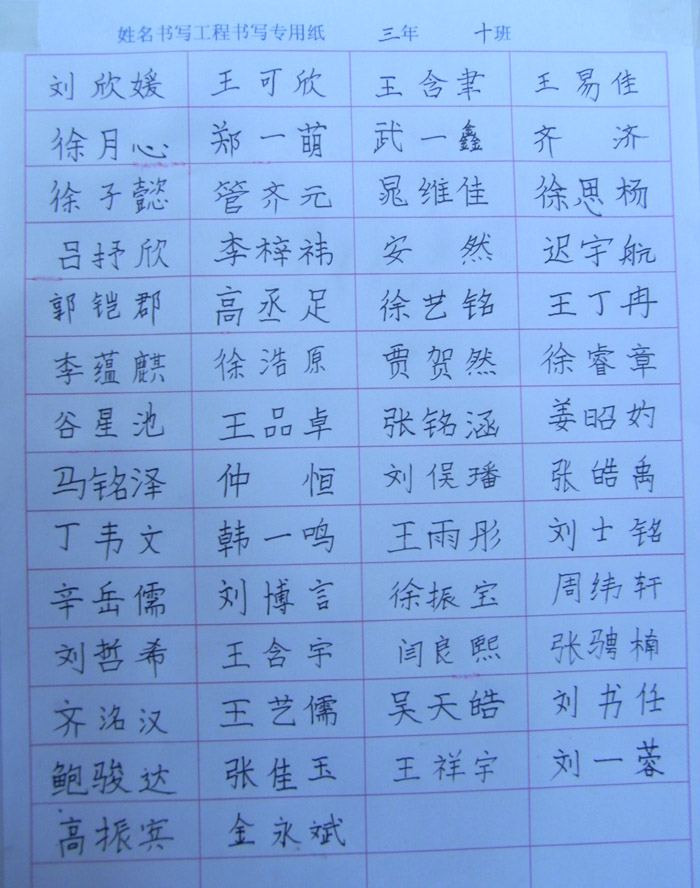 姓名书写工程书写专用纸 三年 十班
刘欣媛 王可欣 王含聿 王易佳
徐月心 郑一萌 武一鑫 齐济
徐子懿 管齐元 晁维佳 徐思杨
吕抒欣 李梓祎 安然 迟宇航
郭铠郡 高丞足 徐艺铭 王丁冉
李蕴麒 徐浩原 贾贺然 徐睿章
谷星池 王品卓 张铭涵 姜昭妁
马铭泽 仲恒 刘俣璠 张皓禹
丁韦文 韩一鸣 王雨彤 刘士铭
辛岳儒 刘博言 徐振宝 周纬轩
刘哲希 王含宇 闫良熙 张骋楠
齐洺汉 王艺儒 吴天皓 刘书任
鲍骏达 张佳玉 王祥宇 刘一蓉
高振宾 金永斌